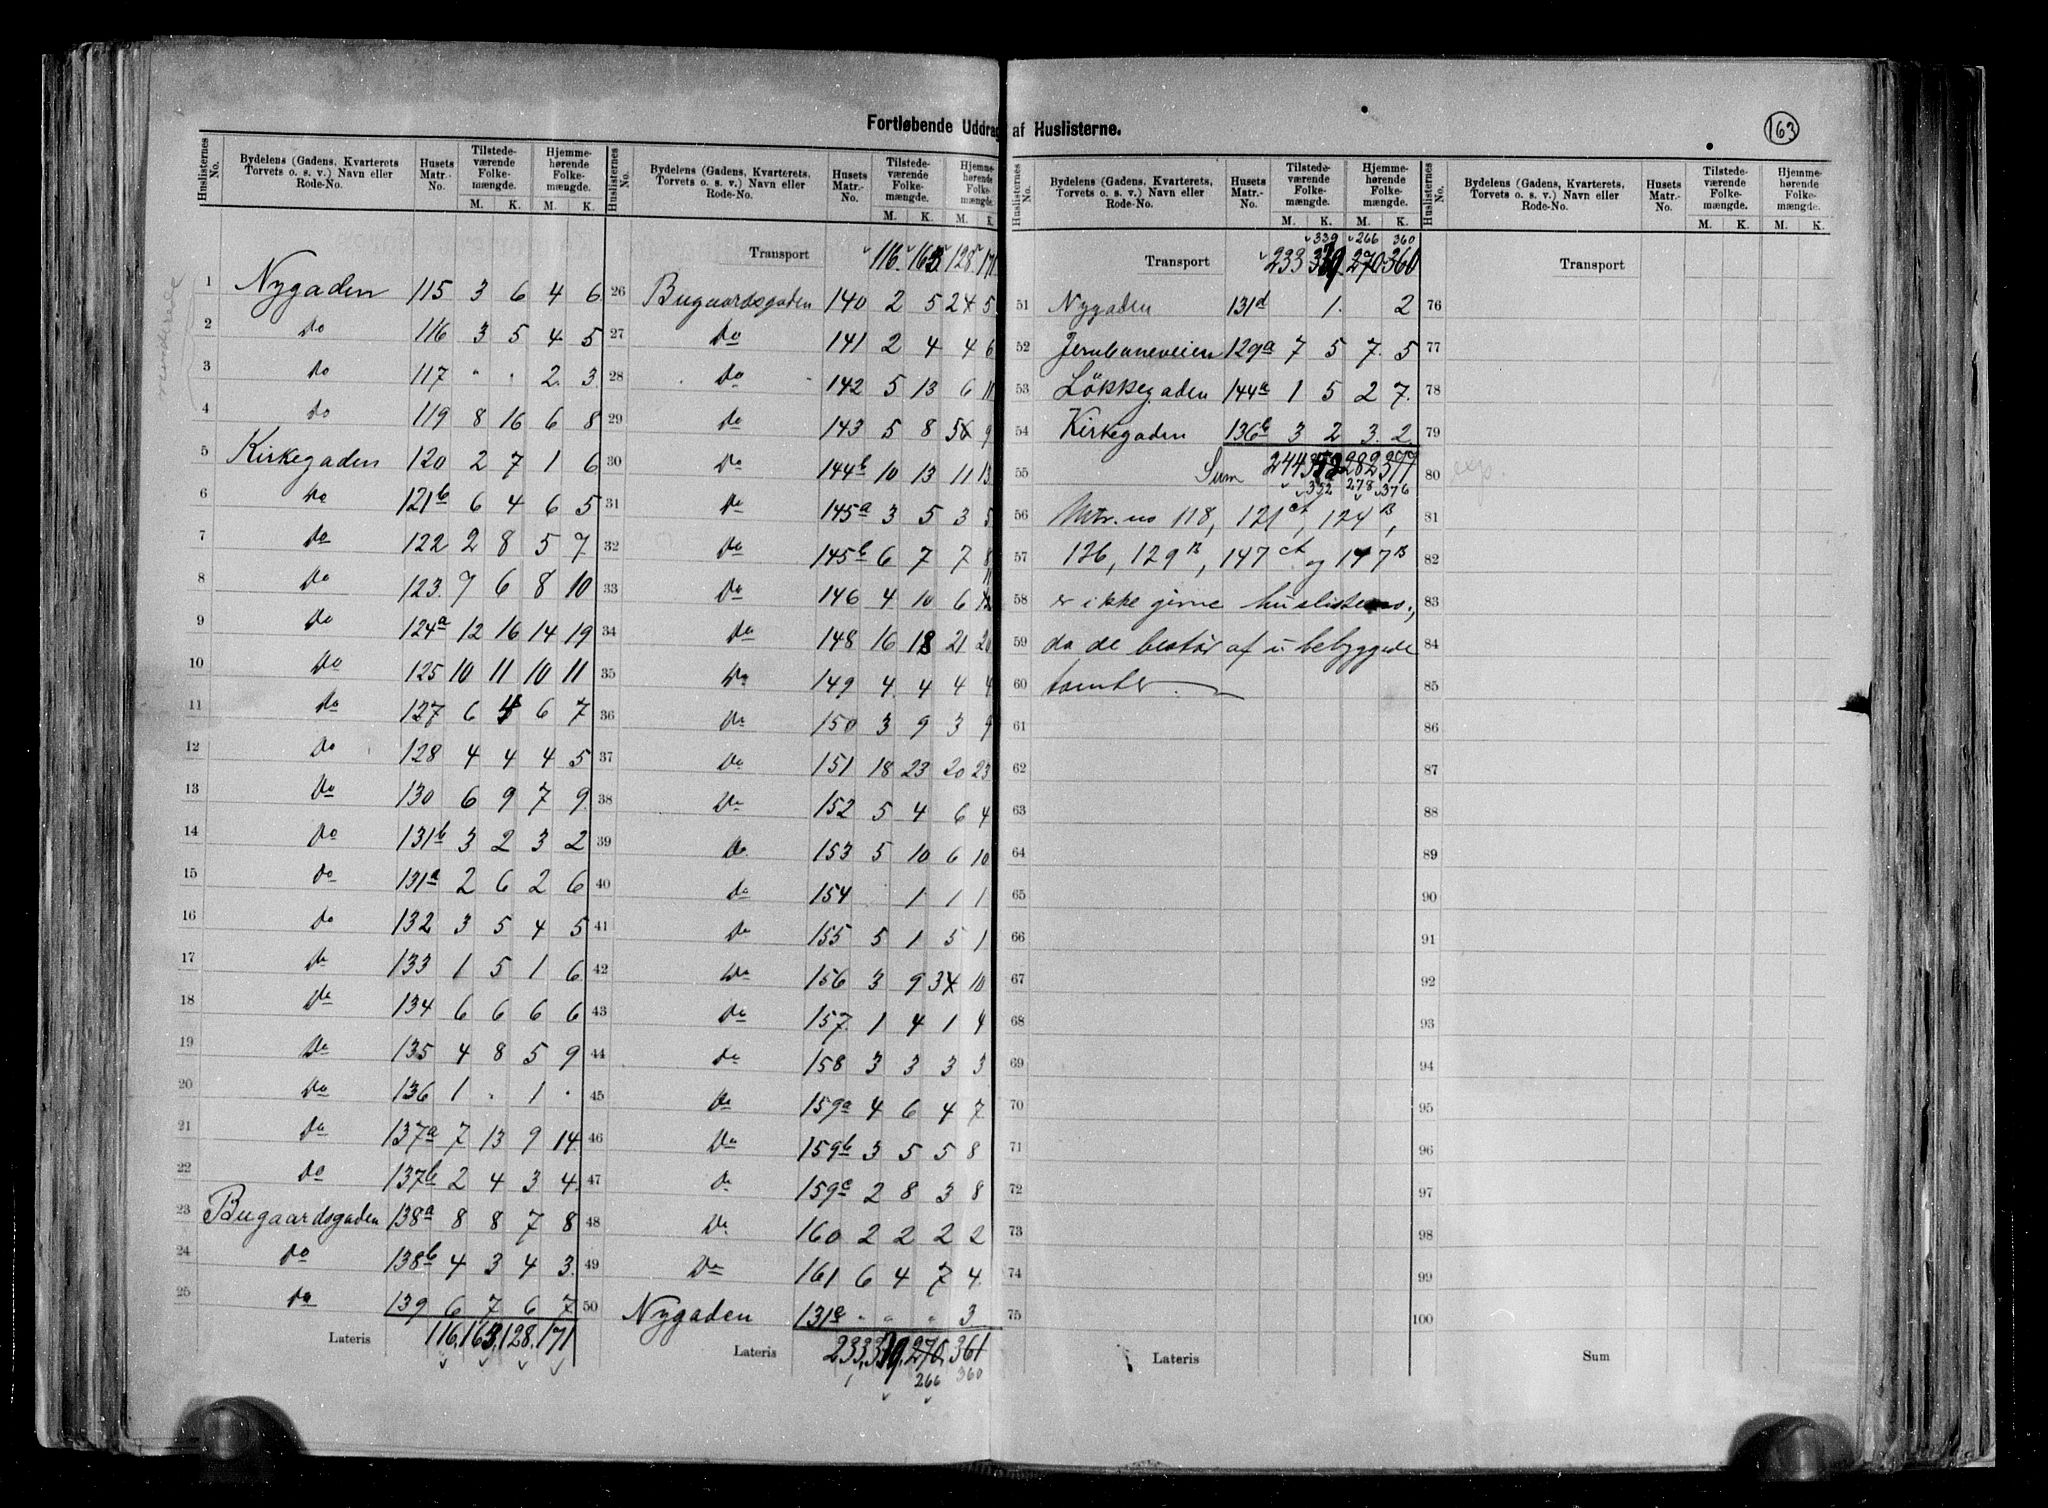 163
Fortløbende Uddrag af Huslisterne.
Huslisternes No. Bydelens (Gadens, Kvarterets Torvets o. s. v.) Navn eller Rode-No. Husets Matr.-No. Tilstedeværende Folkemængde. M. K. Hjemmehørende Folkemængde. M. K.
1 Nygaden 115 3 6 4 6
2 Do 116 3 5 4 5
3 Do 117 " " 2. 3.
4 Do 119 8 16 6 8
5 Kirkegaden 120 2 7 1 6
6 Do 121b 6 4 6 5
7 Do 122 2 8 5 7
8 Do 123. 7 6 8 10
9 Do 124a 12 16 14 19
10 Do 125 10 11 10 11
11 Do 127 6 4 6 7
12 Do 128 4 4 4 5
13 Do 130 6 9 7 9.
14 Do 131b 3 2 3 2
15 Do 131a 2 6 2 6
16 Do 132 3 5 4 5
17 Do 133 1 5 1 6
18 Do 134 6 6 6 6
19 Do 135 4 8 5 9
20 Do 136 1 . 1 .
21 Do 137a 7 13 9 14.
22 Do 137b 2 4 3 4.
23 Bugaardsgaden 138a 8 8 7 8
24 Do 138b 4 3 4 3.
25 Do 139 6 7 6 7
Lateris 116. 163. 128. 171
Huslisternes No. Bydelens (Gadens, Kvarterets, Torvets o. s. v.) Navn eller Rode-No. Husets Matr.-No. Tilstedeværende Folkemængde. M. K. Hjemmehørende Folkemængde. M. K.
Transport 116. 163. 128 171
26 Bugaardsgaden 140 2 5 2 5.
27 Do 141 2 4 4 6
28 Do 142 5 13 6 11
29 Do 143 5 8 5 9
30 Do 144b 10 13 11 13
31 Do 145a 3 5 3 5
32 Do 145b 6 7 7 8
33 Do 146 4 10 6 11
34 Do 148 16 18 21 20
35 Do 149 4. 4 4 4
36 Do 150 3 9 3 9
37 Do 151 18 23 20 23
38 Do 152 5 4 6 4
39 Do 153 5 10 6 10
40 Do 154 1 1 1
41 Do 155 5 1 5 1
42 Do 156 3 9 3 10
43 Do 157. 1 4 1 4
44 Do 158 3 3 3 3
45 Do 159a 4 6 4 7
46 Do 159b 3 5 5 8
47 Do 159c 2 8 3 8
48 Do 160 2 2 2 2
49 Do 161 6 4 7 4.
50 Nygaden 131c " " " 3
Lateris 233. 339. 270. 361
266 360
Huslisternes No. Bydelens (Gadens, Kvarterets, Torvets o. s. v.) Navn eller Rode-No. Husets Matr.-No. Tilstedeværende Folkemængde. M. K. Hjemmehørende Folkemængde. M. K.
339 266 360
Transport 233 339 270 360
51 Nygaden 131d 1. 2
52 Jernbaneveien 129a 7 5 7. 5
53 Løkkegaden 144a 1 5 2 7.
54 Kirkegaden 136b 3 2 3. 2.
55 Sum 244 352 282 377
352 278 376
56 Mtr. no 118, 121A, 124B,
57 126, 129B, 147A og 147B
58 er ikke givne huslisteno.,
59 da de består af ubebyggede
60 tomter.
61
62
63
64
65
66
67
68
69
70
71
72
73
74
75
Lateris
Huslisternes No. Bydelens (Gadens, Kvarterets, Torvets o. s. v.) Navn eller Rode-No. Husets Matr.-No. Tilstedeværende Folkemængde. M. K. Hjemmehørende Folkemængde. M. K.
Transport
76
77
78
79
80
81
82
83
84
85
86
87
88
89
90
91
92
93
94
95
96
97
98
99
100
Sum